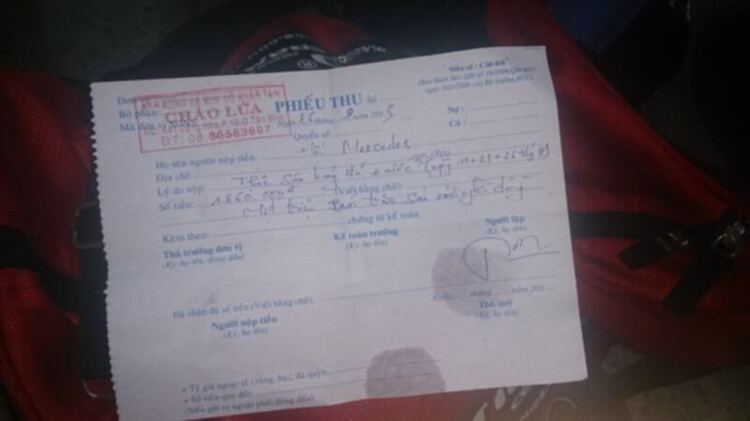 Mẫu số : C30-BB
Đơn
SÂN BÓNG ĐÁ MINI CỎ NHÂN TẠO
Bộ phận
CHẢO LỬA
PHIẾU THU Số
Mã đơn vị
ĐT: 08.66563697
Ngày 26 tháng 9 năm 2015
Nợ :
Quyển số:
Có :
Họ tên người nộp tiền: Mercedes
Địa chỉ:
Lý do nộp: Tiền sân bóng đá + nước (ngày 19 + 23 + 26 tháng 9)
Số tiền: 1.860.000đ (Viết bằng chữ):
Một triệu tám trăm sáu mươi ngàn đồng
Kèm theo: chứng từ kế toán.
Thủ trưởng đơn vị
Kế toán trưởng
Người lập
(Ký, họ tên, đóng dấu)
(Ký, họ tên)
(Ký, họ tên)
Đã nhận đủ số tiền (Viết bằng chữ):
Ngày tháng năm 201
Người nộp tiền
Thủ quỹ
(Ký, họ tên)
(Ký, họ tên)
+ Tỷ giá ngoại tệ (vàng, bạc, đá quý):
+ Số tiền quy đổi:
(Nếu gửi ra ngoài phải đóng dấu)